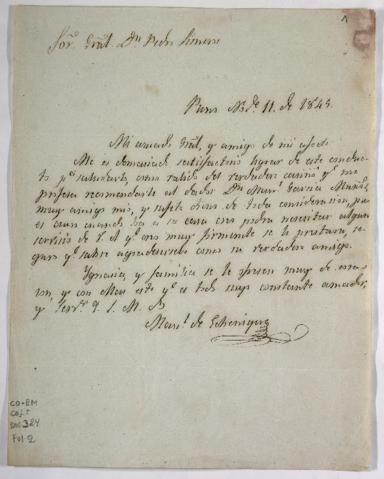 1
Sor. Gral. Dn. Pedro
11. de 1845.
Mi amado Gral. y amigo de mi afecto
Me es demaciado satisfactorio de este conduc-
to pa. saludarlo, como valido del verdadero cariño q. me
profesa recomendarle al dador Dn. Manl. Garcia
muy amigo mio, y sujeto digno de toda consideracion, pues
es cuando a su casa podra necesitar algun
servicio de V. y creo muy firmemente se lo prestara, se-
guro qe. sabre agradecerselo como su verdadero amigo.
Ygnacia y familia se le ofrecen muy de cora-
zon, y con esto qe. a todos su constante amador,
y Servr. Q. S. M. B.
Manl. de Echenique
CO-EM
Caj. 5
Doc 324
Fol-2